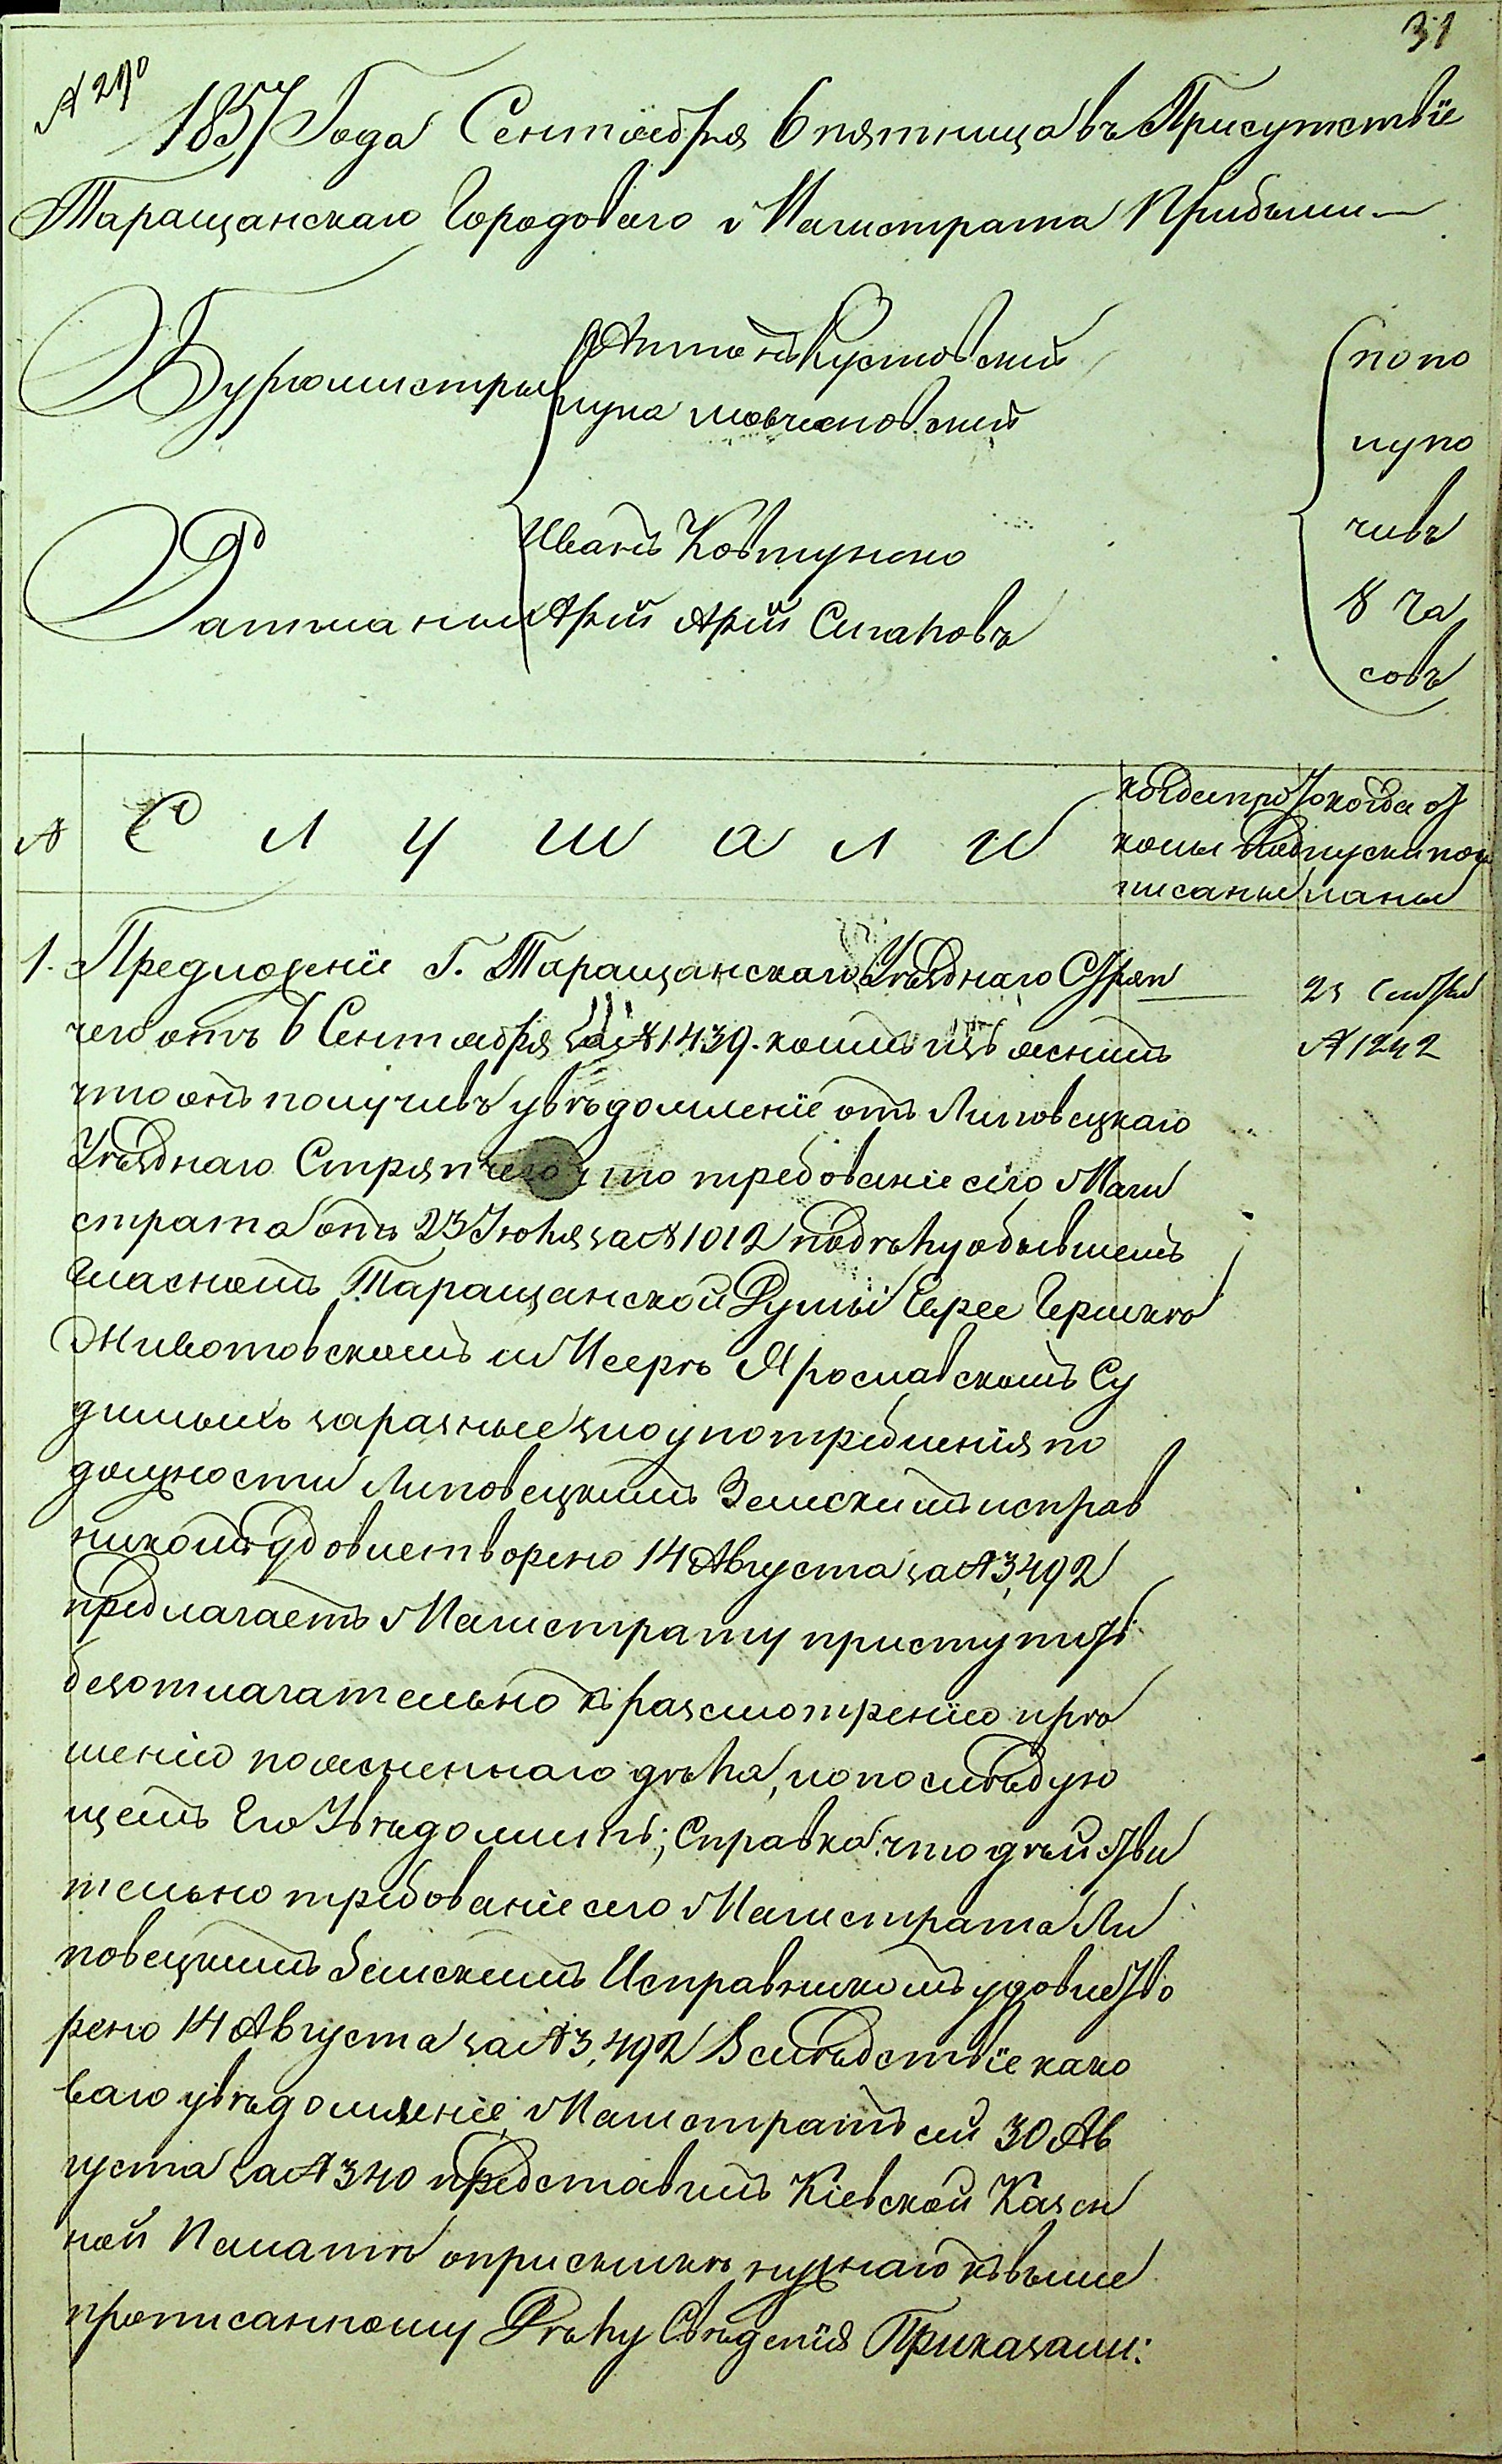 31
№ 290
1857 Года Сентября 6 пятница въ Присутствіе
Таращанскаго Городоваго Магистрата Прибыли
Бургомистры
Антонъ Кустовскій
Лука Мовчановскій
Ратманы
Иванъ Ковтуненко
Арій Арій Сигаловъ
по по
лупо
чивъ
8 ча
совъ
№
Слушали
когда прото
колы под
писаны
когда от
пуски пос
ланы
1. Предложеніе Г. Таращанскаго Уѣзднаго Стряп
чего отъ 6 Сентября за № 1439. коимъ изъяснитъ
что онъ получивъ увѣдомленіе отъ Липовецкаго
Уѣзднаго Стряпчего что требованіе сего Маги
страта отъ 23 Іюля за № 1012 по дѣлу о бывшемъ
Гласномъ Таращанской Думы Еврее Гершкѣ
Животовскомъ и Меерѣ Ярославскомъ Су
димыхъ за разные злоупотребленія по
должности Липовецкимъ Земскимъ исправ
никомъ удовлетворено 14 Августа за № 3,492
предлагаетъ Магистрату приступить
безотлагательно къ разсмотренію и рѣ
шенію поясненнаго дѣла, и о послѣдую
щемъ Его Увѣдомить; Справка: что дѣйстви
тельно требованіе сего Магистрата Ли
повецкимъ Земскимъ Исправникомъ удовлетво
рено 14 Августа за № 3,492 Вслѣдствіе како
ваго увѣдомленіе Магистратъ сей 30 Ав
густа за № 340 представилъ Кіевской Казен
ной Палатѣ о прискилкѣ нужнаго къ выше
прописанному Дѣлу Свѣденія Приказали:
23 Сентбря
№ 1242